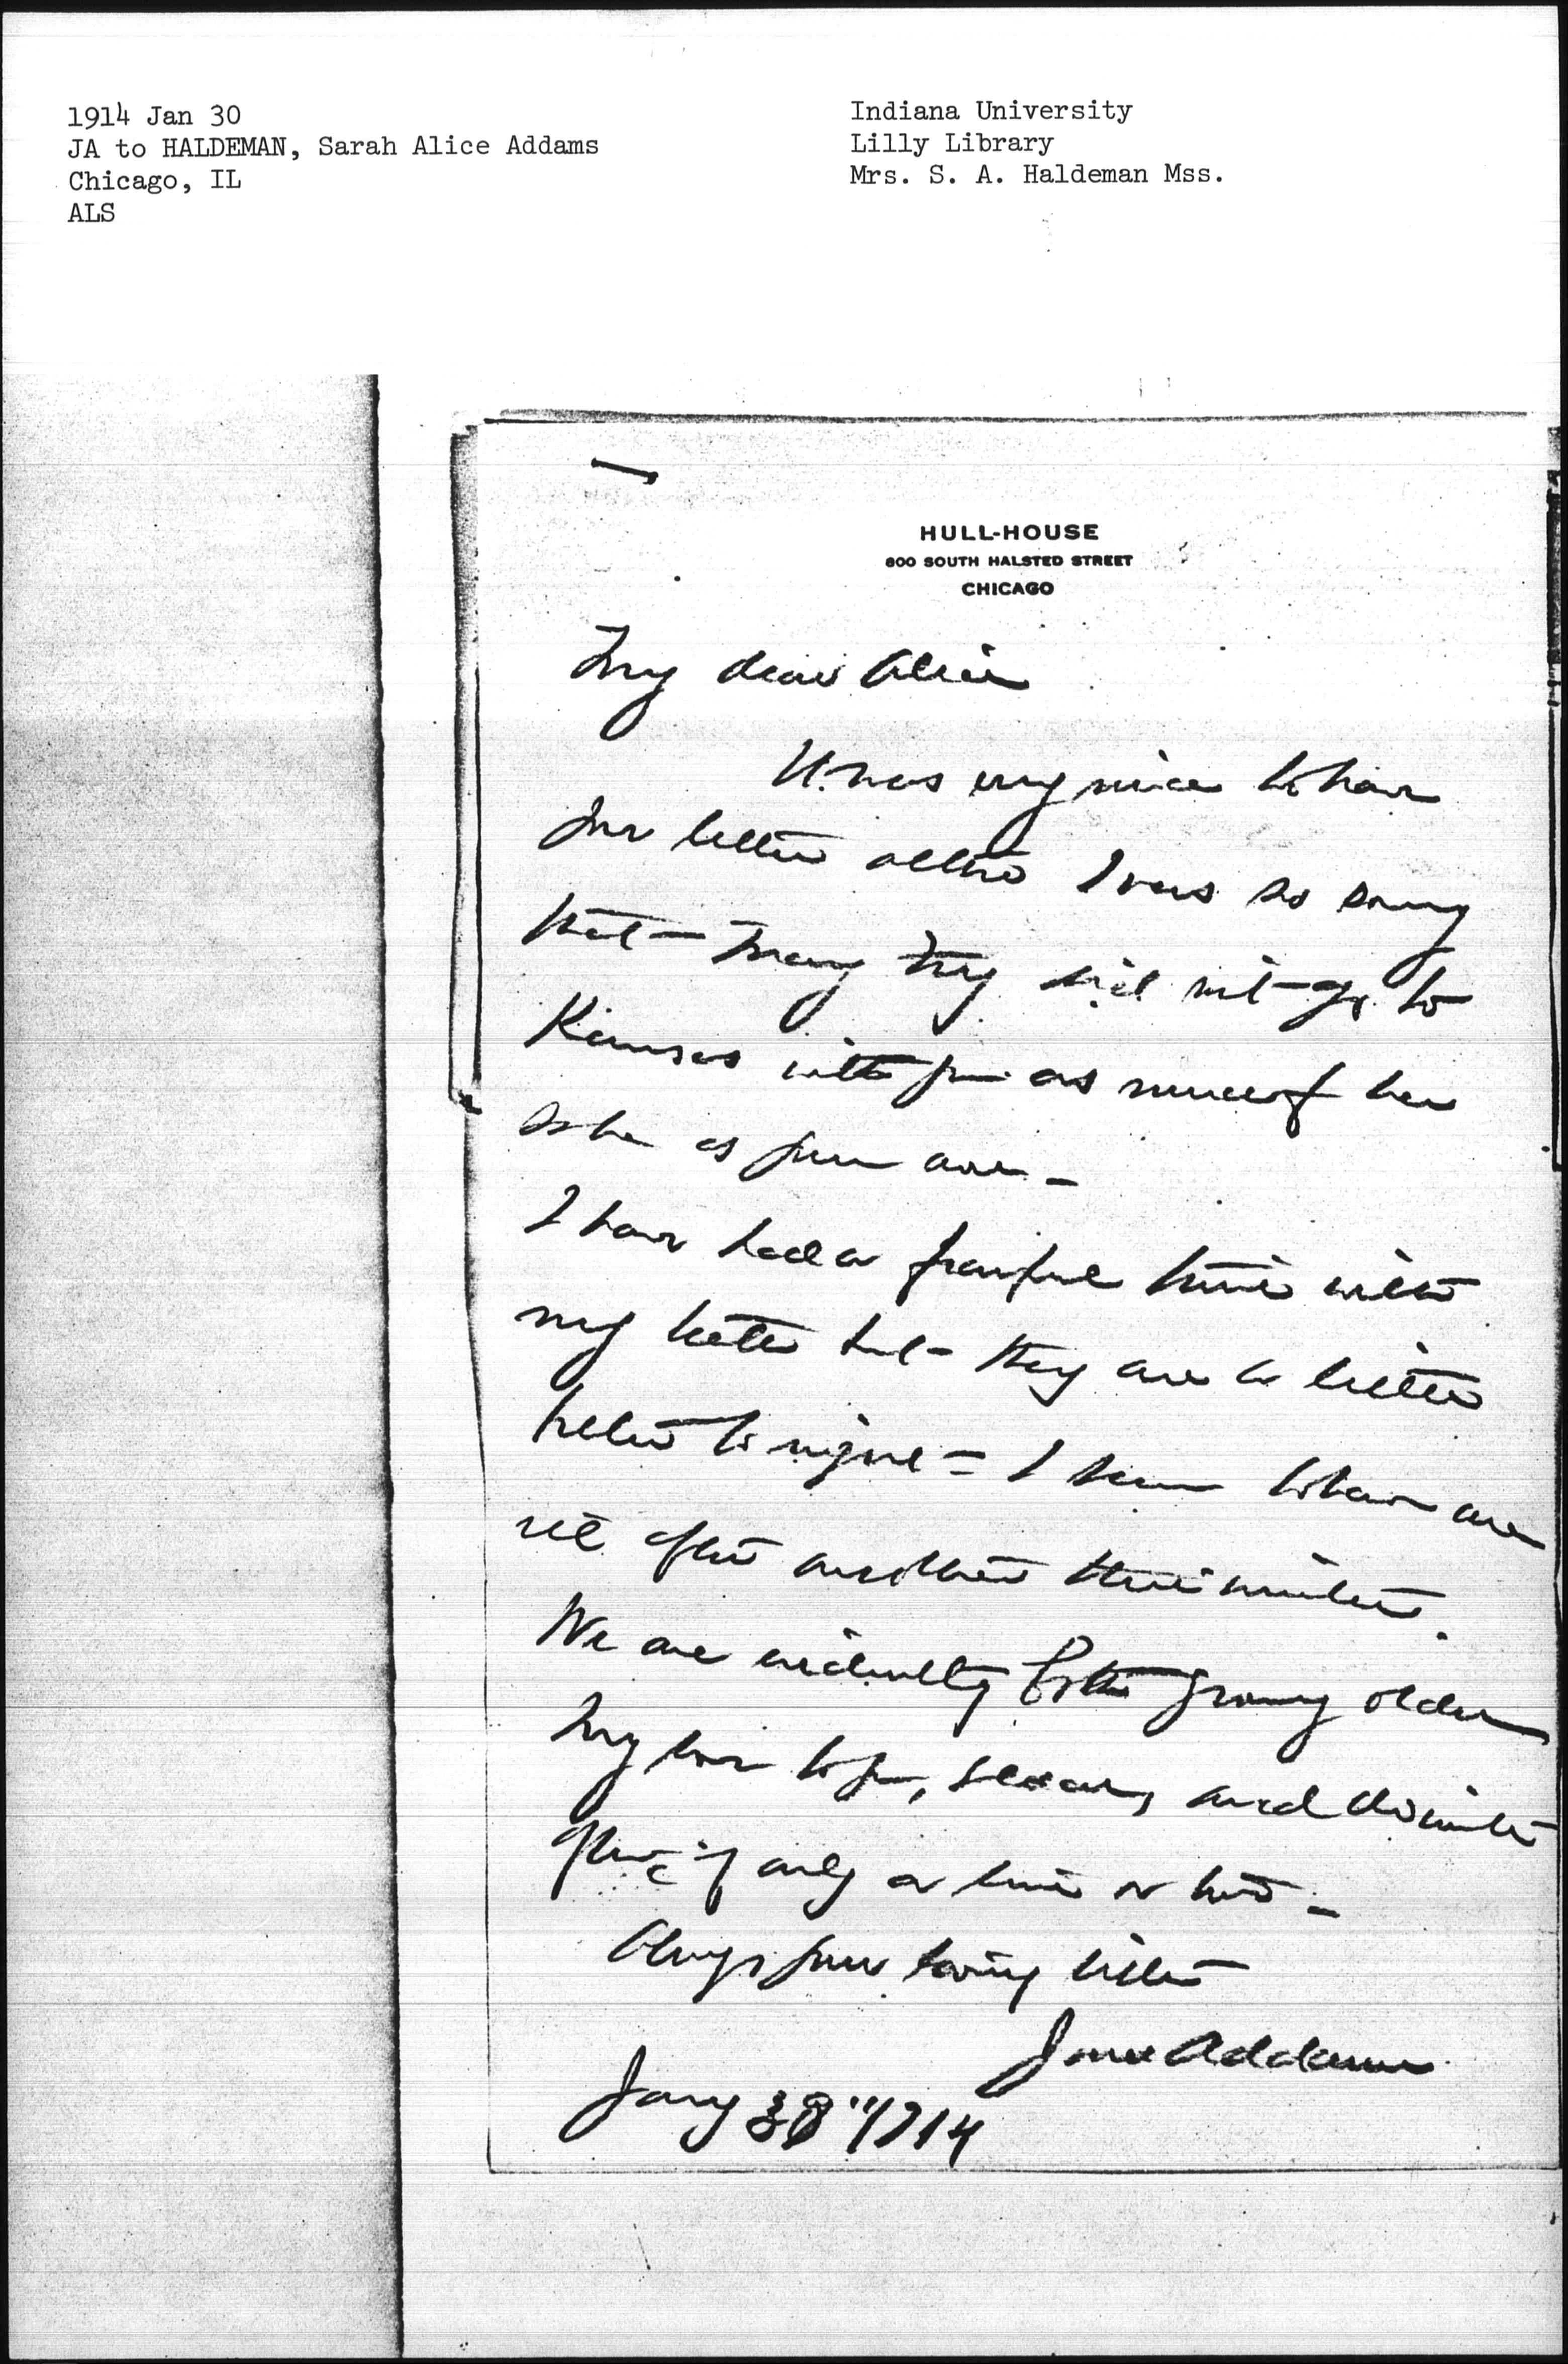 1914 Jan 30
JA to HALDEMAN, Sarah Alice Addams
Chicago, IL
ALS
Indiana University
Lilly Library
Mrs. S. A. Haldeman Mss.
HULL-HOUSE
800 SOUTH HALSTED STREET
CHICAGO
My dear Alice
It was very nice to have
your letter altho I was so sorry
that Mary did not go to
Kansas with you as much of her
as you are –
I have had a frightful time with
my teeth but they are a little
better to night – I seem to have one
after another this winter.
We are evidently both growing older
My love to you, dear, and do write
often if only a line or two –
Always your loving sister
Jane Addams
Jany 30" 1914